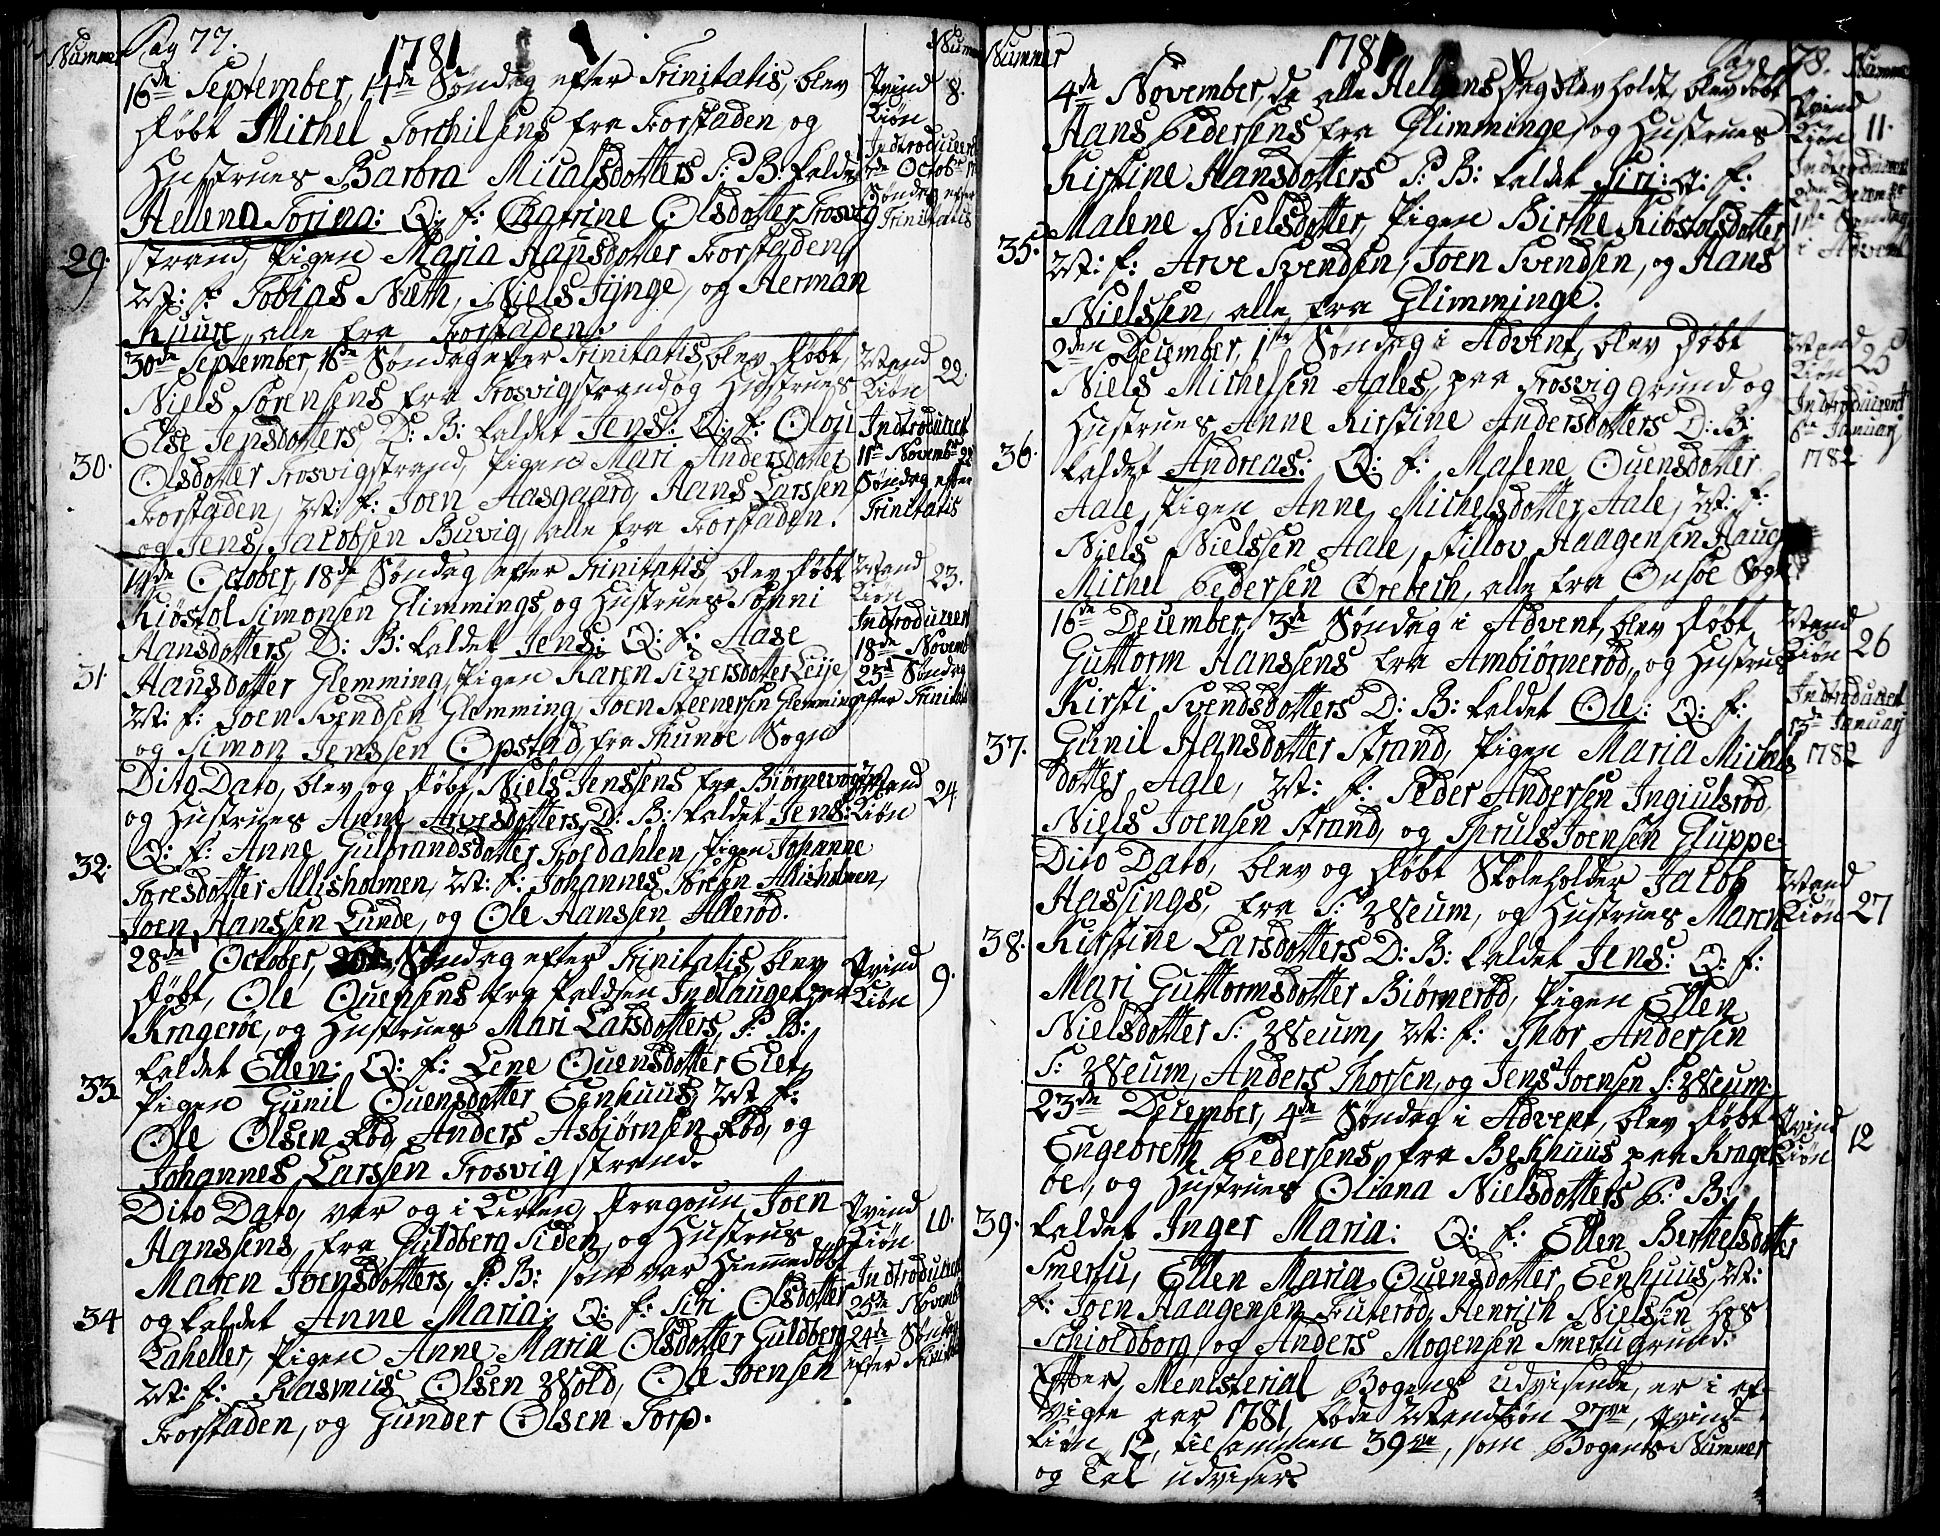 Nummer Pag 77. 1781 Numm
16de September, 14de Søndag efter Trinitatis, blev
døbt Michel Torchilsens fra Forstaden, og
Hustrues Barbra Micalsdotters P: B: kaldet
Hellena Torina: Q: f: Chatrine Olsdotter Trosvig
29. strand, Pigen Maria Hansdotter Forstaden,
M: f: Tobias Næth, Niels Fÿnge, og Herman
Kuure, alle fra Forstaden.
Qvind Kiøn 8.
Indtroduceret
7de Octobr 17de
Søndag efter
Trinitatis
30de September, 16de Søndag efter Trinitatis, blev døbt
Niels Sørensens fra Trosvigstrand og Hustrues
Else Jensdotters D: B: kaldet Jens: Q: f: Olou
30. Olsdotter Trosvigstrand, Pigen Mari Andersdotter
Forstaden, M: f: Joen Aasgaard, Hans Larssen
og Jens Jacobsen Buvig, alle fra Forstaden.
Mand Kiøn 22.
Indtroduceret
11te Novembr 22
Søndag efter
Trinitatis
14de October, 18de Søndag efter Trinitatis, blev døbt
Kiøstol Simonsen Glimmings, og Hustrues Tønni
Hansdotters, D: B: kaldet Jens: Q: f: Aase
31. Hansdotter Glemming, Pigen Karen Siversdotter Leije,
M: f: Joen Svendsen Glemming, Joen Steenersen Glemming
og Simon Jenssen Opstad fra Thunøe Sogn
Mand Kiøn 23.
Indtroduceret
18de Novemb
23de Søndag
efter Trinitatis
Dito Dato, blev og døbt, Niels Jenssens fra Biørnevogen
og Hustrues Anne Arvesdotters, D: B: kaldet Jens:
Q: f: Anne Gulbrandsdotter Foesdahlen, Pigen Johanne
32. Toresdotter Allisholmen, M: f: Johannes Joreen Allisholmen,
Joen Hanssen Lunde, og Ole Hanssen Allerød.
Mand Kiøn 24
28de October, Søndag efter Trinitatis, blev
døbt, Ole Ouensens fra Feldsen Indlauget paa
Kragerøe, og Hustrues Mari Larsdotters, P: B:
kaldet Ellen: Q: f: Lene Ouensdotter Elet,
33. Pigen Gunil Ouensdotter Eenhuus, M: f:
Ole Olsen Rød, Anders Asbjørnsen Rød, og
Johannes Larssen Trosvig strand.
Qvind Kiøn 9.
Dito Dato, var og i Kirken, Dragoun Joen
Hanssens, fra Guldberg Siden, og Hustrues
Maren Joensdotters, P: B: som var Hiemmedøbt
34 og kaldet Anne Maria: Q: f: Siri Olsdotter
Lakeller, Pigen Anne Maria Olsdotter Guldberg
M: f: Rasmus Olsen Wold, Ole Joensen
Forstaden, og Gunder Olsen Torp.
Qvind Kiøn 10.
Indtroduceret
25de Novemb
24de Søndag
efter Trinitat
Nummer 1781 Page 78. Numm
4de November, da alle Helgens Dag blev holdt, blev døbt
Hans Pedersens fra Glimminge, og Hustrues
Kirstine Hansdotters P: B: kaldet Siri: Q: f:
Malene Nielsdotter, Pigen Birthe Kiøstolsdotter
35. M: f: Arve Svendsen, Joen Svendsen, og Hans
Nielssen, alle fra Glimminge.
Qvind Kiøn 11.
Indtroduceret
2den Decembr
1ste Søndag
i Advent
2den December, 1ste Søndag i Advent, blev døbt
Niels Michelsen Aales, paa Trosvig grund, og
Hustrues Anne Kirstine Andersdotters D: B:
36. kaldet Andreas: Q: f: Malene Ouensdotter
Aale, Pigen Anne Michelsdotter Aale, M: f:
Niels Nielssen Aale, Tillov Haagensen Haug
Michel Pedersen Ørebech, alle fra Onsøe Sogn.
Mand Kiøn 25
Indtroduceret
6te Januarj
1782
16de December, 3de Søndag i Advent, blev døbt
Guttorm Hanssens fra Ambiørnerød, og Hustrues
Kirsti Svendsdotters D: B: kaldet Ole: Q: f:
37. Gunil Hansdotter Strand, Pigen Maria Michels
dotter Aale, M: f: Peder Andersen Ingiulsrød,
Niels Joensen Strand, og Thruls Joensen Gluppe.
Mand Kiøn 26
Indtroduceret
13de Januarj
1782
Dito Dato, blev og døbt Skoleholder Jacob
Hassings, fra S: Weum, og Hustrues Maren
38. Kirstine Larsdotters D: B: kaldet Jens: Q: f:
Mari Guttormsdotter Biørnerød, Pigen Ellen
Nielsdotter S: Weum, M: f: Thor Andersen
S: Weum, Anders Thorsen, og Jens Joensen S: Weum.
Mand Kiøn 27
23de December, 4de Søndag i Advent, blev døbt
Engebreth Pedersens, fra Bekhuus paa Krager
øe, og Hustrues Oliana Nielsdotters P: B:
39. kaldet Inger Maria: Q: f: Ellen Berthelsdotter
Smertu, Ellen Maria Ouensdotter, Eenhuus, M:
f: Joen Haagensen Buterød, Henrich Nielsen hos
Schioldborg, og Anders Mogensen Smertugrund.
Qvind Kiøn 12
Efter Menisterial Bogens Udvisende, er i af-
vigte aar 1781, Føde Mandkiøn 27ve, Qvind-
kiøn 12, tilsammen 39ve, som Bogens Nummer
og Tal udviser